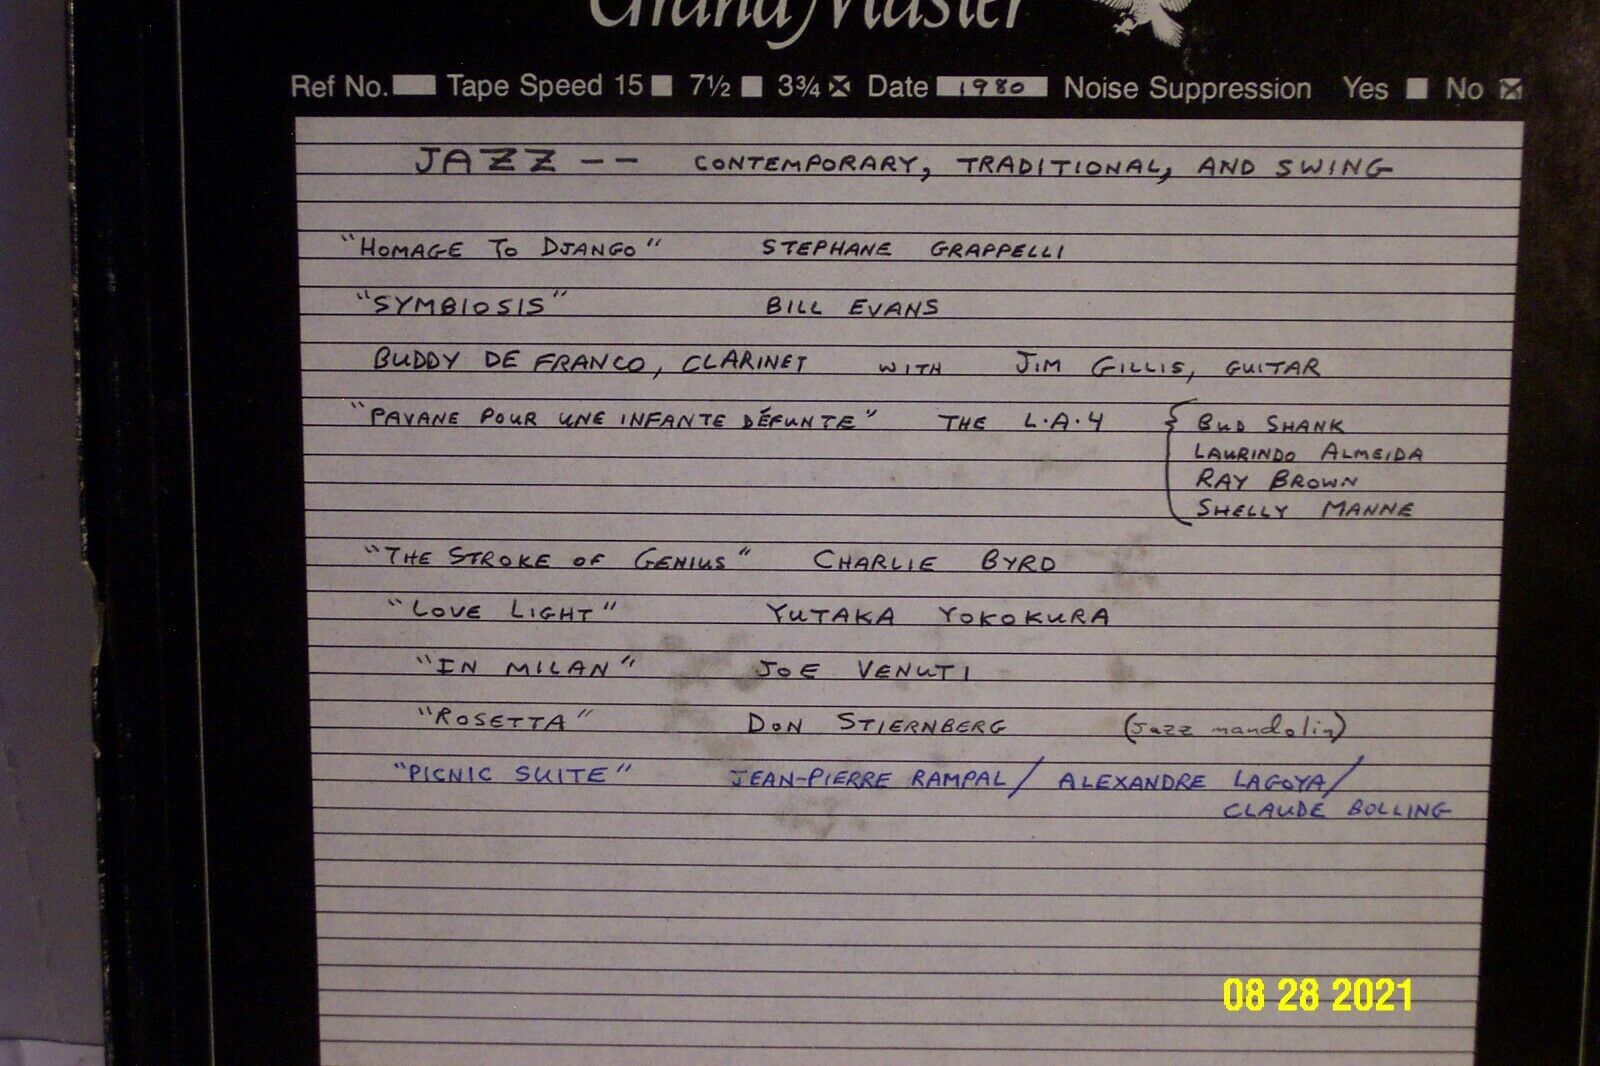 Grand Master
Ref No. Tape Speed 15 7½ 3¾ Date 1980 Noise Suppression Yes No
JAZZ -- CONTEMPORARY, TRADITIONAL, AND SWING
"HOMAGE TO DJANGO" STEPHANE GRAPPELLI
"SYMBIOSIS" BILL EVANS
BUDDY DE FRANCO, CLARINET WITH JIM GILLIS, GUITAR
"PAVANE POUR UNE INFANTE DÉFUNTE" THE L.A.4 { BUD SHANK
LAURINDO ALMEIDA
RAY BROWN
SHELLY MANNE
"THE STROKE OF GENIUS" CHARLIE BYRD
"LOVE LIGHT" YUTAKA YOKOKURA
"IN MILAN" JOE VENUTI
"ROSETTA" DON STIERNBERG (Jazz mandolin)
"PICNIC SUITE" JEAN-PIERRE RAMPAL/ ALEXANDRE LAGOYA/
CLAUDE BOLLING
08 28 2021